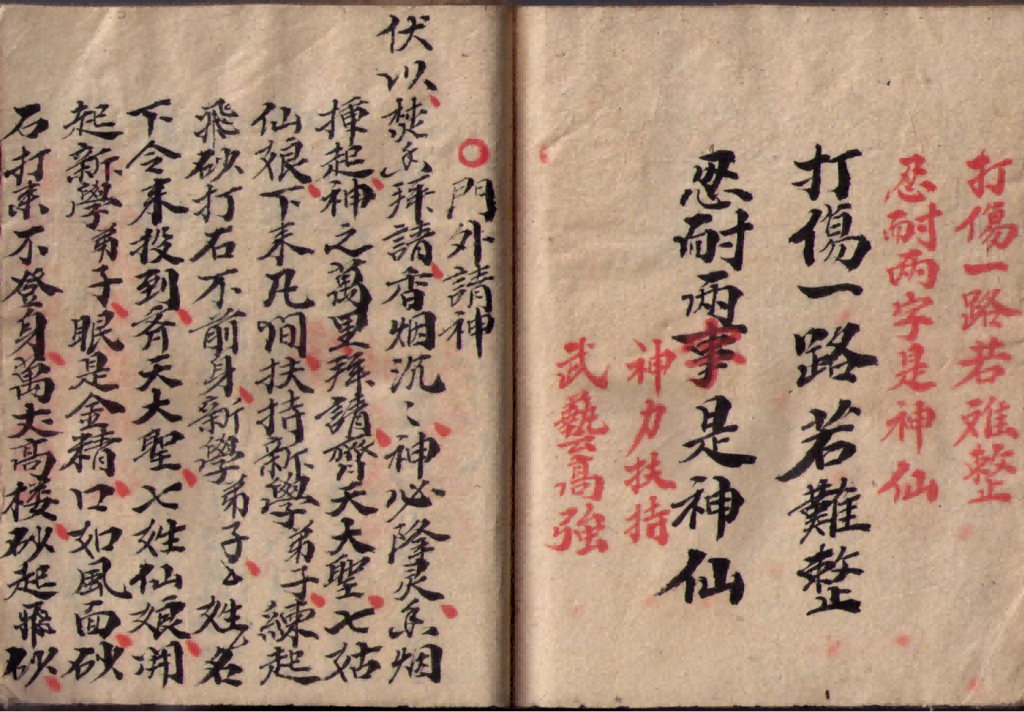 打傷一路若难整
忍耐两字是神仙
打傷一路若難整
忍耐两事是神仙
神力扶持
武藝高強
門外請神
伏以焚香拜請香烟沉〻神必降灵香烟
揮起神之萬里拜請齊天大聖七姑
仙娘下来凡间扶持新學弟子練起
飛砂打石不前身新學弟子〻姓名
下令来投到齐天大聖七姓仙娘開
起新學弟子眼是金精口如風面砂
石打来不登身萬丈高楼砂起飛砂